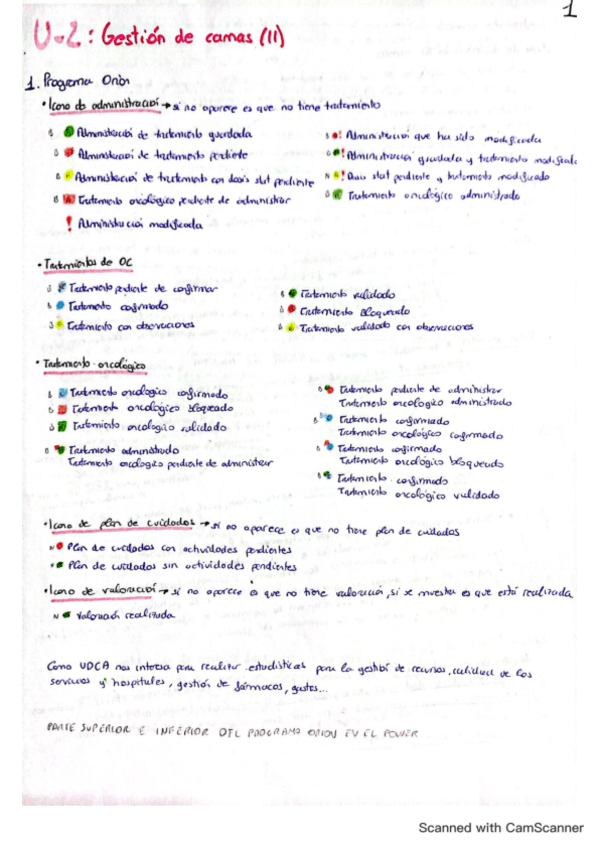 1
U-2: Gestión de camas (II)
1. Programa Orion
• Icono de administración → si no aparece es que no tiene tratamiento
Administración de tratamiento guardada
Administración de tratamiento pendiente
Administración de tratamiento con dosis stat pendiente
Tratamiento oncológico pendiente de administrar
! Administración modificada
! Administración que ha sido modificada
! Administración guardada y tratamiento modificado
! Dosis stat pendiente y tratamiento modificado
Tratamiento oncológico administrado
• Tratamientos de OC
Tratamiento pendiente de confirmar
Tratamiento confirmado
Tratamiento con observaciones
Tratamiento validado
Tratamiento bloqueado
Tratamiento validado con observaciones
• Tratamiento oncológico
Tratamiento oncologico confirmado
Tratamiento oncológico bloqueado
Tratamiento oncologico validado
Tratamiento administrado
Tratamiento oncologico pendiente de administrar
Tratamiento pendiente de administrar
Tratamiento oncologico administrado
Tratamiento confirmado
Tratamiento oncológico confirmado
Tratamiento confirmado
Tratamiento oncológico bloqueado
Tratamiento confirmado
Tratamiento oncológico validado
• Icono de plan de cuidados → si no aparece es que no tiene plan de cuidados
N Plan de cuidados con actividades pendientes
Plan de cuidados sin actividades pendientes
• Icono de valoración → si no aparece es que no tiene valoración, si se muestra es que está realizada
N Valoración realizada
Como UDCA nos interesa para realizar estadísticas para la gestión de recursos, calidad de los
servicios y hospitales, gestión de fármacos, gastos...
PARTE SUPERIOR E INFERIOR DEL PROGRAMA ORION EN EL POWER
Scanned with CamScanner